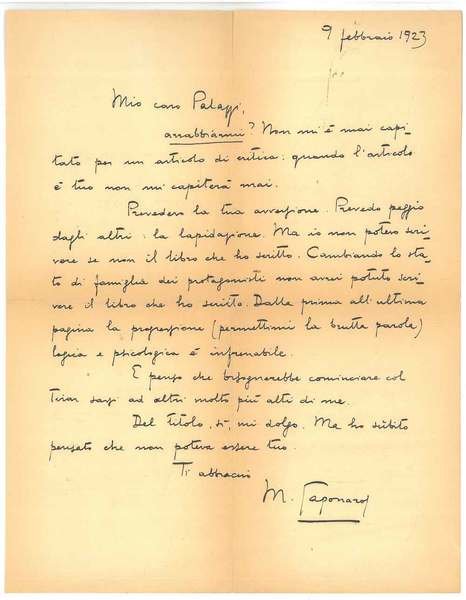 9 febbraio 1923
Mio caro Palazzi,
arrabbiarmi? Non mi è mai capi-
tato per un articolo di critica: quando l'articolo
è tuo non mi capiterà mai.
Prevedevo la tua avversione. Prevedo peggio
dagli altri: la lapidazione. Ma io non potevo scri-
vere se non il libro che ho scritto. Cambiando lo sta-
to di famiglia dei protagonisti non avrei potuto scri-
vere il libro che ho scritto. Dalla prima all'ultima
pagina la progressione (permettimi la brutta parola)
logica e psicologica è infrenabile.
E penso che bisognerebbe cominciare col
ad altri molto più alti di me.
Del titolo, sì, mi dolgo. Ma ho sùbito
pensato che non poteva essere tuo.
Ti abbraccio
M. Saponaro